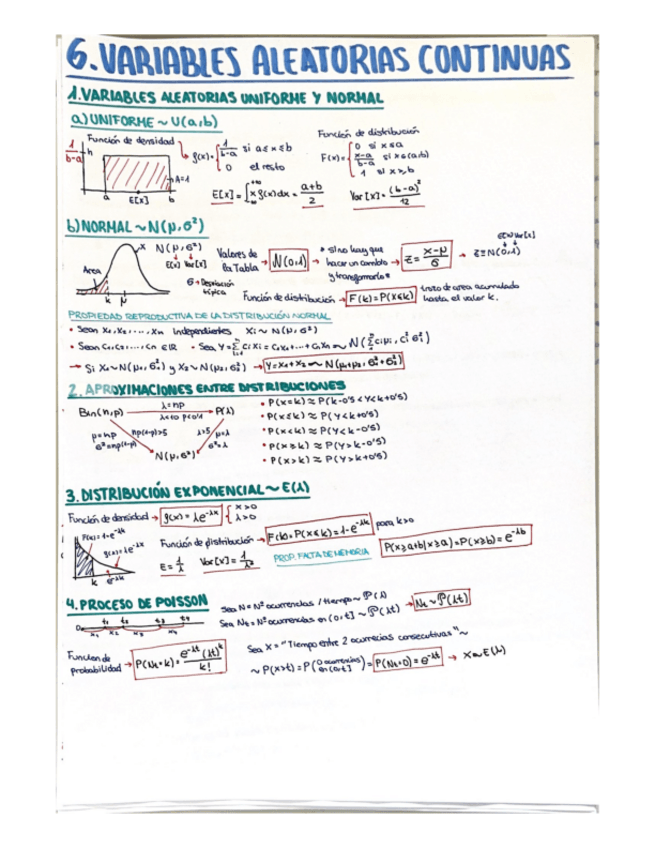 6. VARIABLES ALEATORIAS CONTINUAS
1. VARIABLES ALEATORIAS UNIFORME Y NORMAL
a) UNIFORME ~ U(a,b)
Función de densidad → f(x) = { 1/(b-a) si a≤x≤b
0 el resto
1/(b-a) h A=1 a E[x] b
Función de distribución
F(x) = { 0 si x≤a
x-a/b-a si x∈(a,b)
1 si x≥b
E[x] = ∫_{-∞}^{+∞} x f(x)dx = (a+b)/2
Var [x] = (b-a)²/12
b) NORMAL ~ N(μ, σ²)
X N(μ, σ²)
E[x] Var[x]
Área k μ
σ → Desviación típica
Valores de la Tabla → N(0,1)
* si no hay que hacer un cambio y transformarlo * → Z = (x-μ)/σ → Z ≡ N(0,1)
E[x] Var[x]
Función de distribución → F(k) = P(x≤k) → trata de area acumulada hasta el valor k.
PROPIEDAD REPRODUCTIVA DE LA DISTRIBUCIÓN NORMAL
• Sean X₁, X₂, ..., Xn independientes Xi ~ N(μ, σ²)
• Sean C₁, C₂, ..., Cn ∈ℝ • Sea, Y = Σ_{i=1}^{n} Ci Xi = C₁X₁+...+CnXn ~ N(Σ ciμi, ci² σi²)
→ Si X₁~N(μ₁, σ₁²) y X₂~N(μ₂, σ₂²) → Y = X₁+X₂ ~ N(μ₁+μ₂, σ₁²+σ₂²)
2. APROXIMACIONES ENTRE DISTRIBUCIONES
Bin(n,p) λ=np P(λ)
μ=np σ²=np(1-p) np(1-p)>5 λ>5 μ=λ σ²=λ
N(μ, σ²)
• P(x=k) ≈ P(k-0'5<Y<k+0'5)
• P(x≤k) ≈ P(Y<k+0'5)
• P(x<k) ≈ P(Y<k-0'5)
• P(x≥k) ≈ P(Y>k-0'5)
• P(x>k) ≈ P(Y>k+0'5)
3. DISTRIBUCIÓN EXPONENCIAL ~ E(λ)
Función de densidad → f(x) = λe^{-λx} { x>0
λ>0
F(x) = 1-e^{-λx}
f(x) = λe^{-λx}
k e^{-λk}
Función de distribución → F(k) = P(x≤k) = 1-e^{-λk} para k>0
E = 1/λ Var[x] = 1/λ²
PROP. FALTA DE MEMORIA P(x≥a+b|x≥a) = P(x≥b) = e^{-λb}
4. PROCESO DE POISSON
0 t₁ t₂ t₃ t₄
x₁ x₂ x₃ x₄
Sea N = Nº ocurrencias / tiempo ~ P(λ)
Sea Nt = Nº ocurrencias en (0,t] ~ P(λt) → Nt ~ P(λt)
Función de probabilidad → P(Nt=k) = e^{-λt}(λt)^k / k!
Sea X = "Tiempo entre 2 ocurrecias consecutivas" ~
~ P(x>t) = P(0 ocurrencias en (0,t]) = P(Nt=0) = e^{-λt} → X~E(λ)